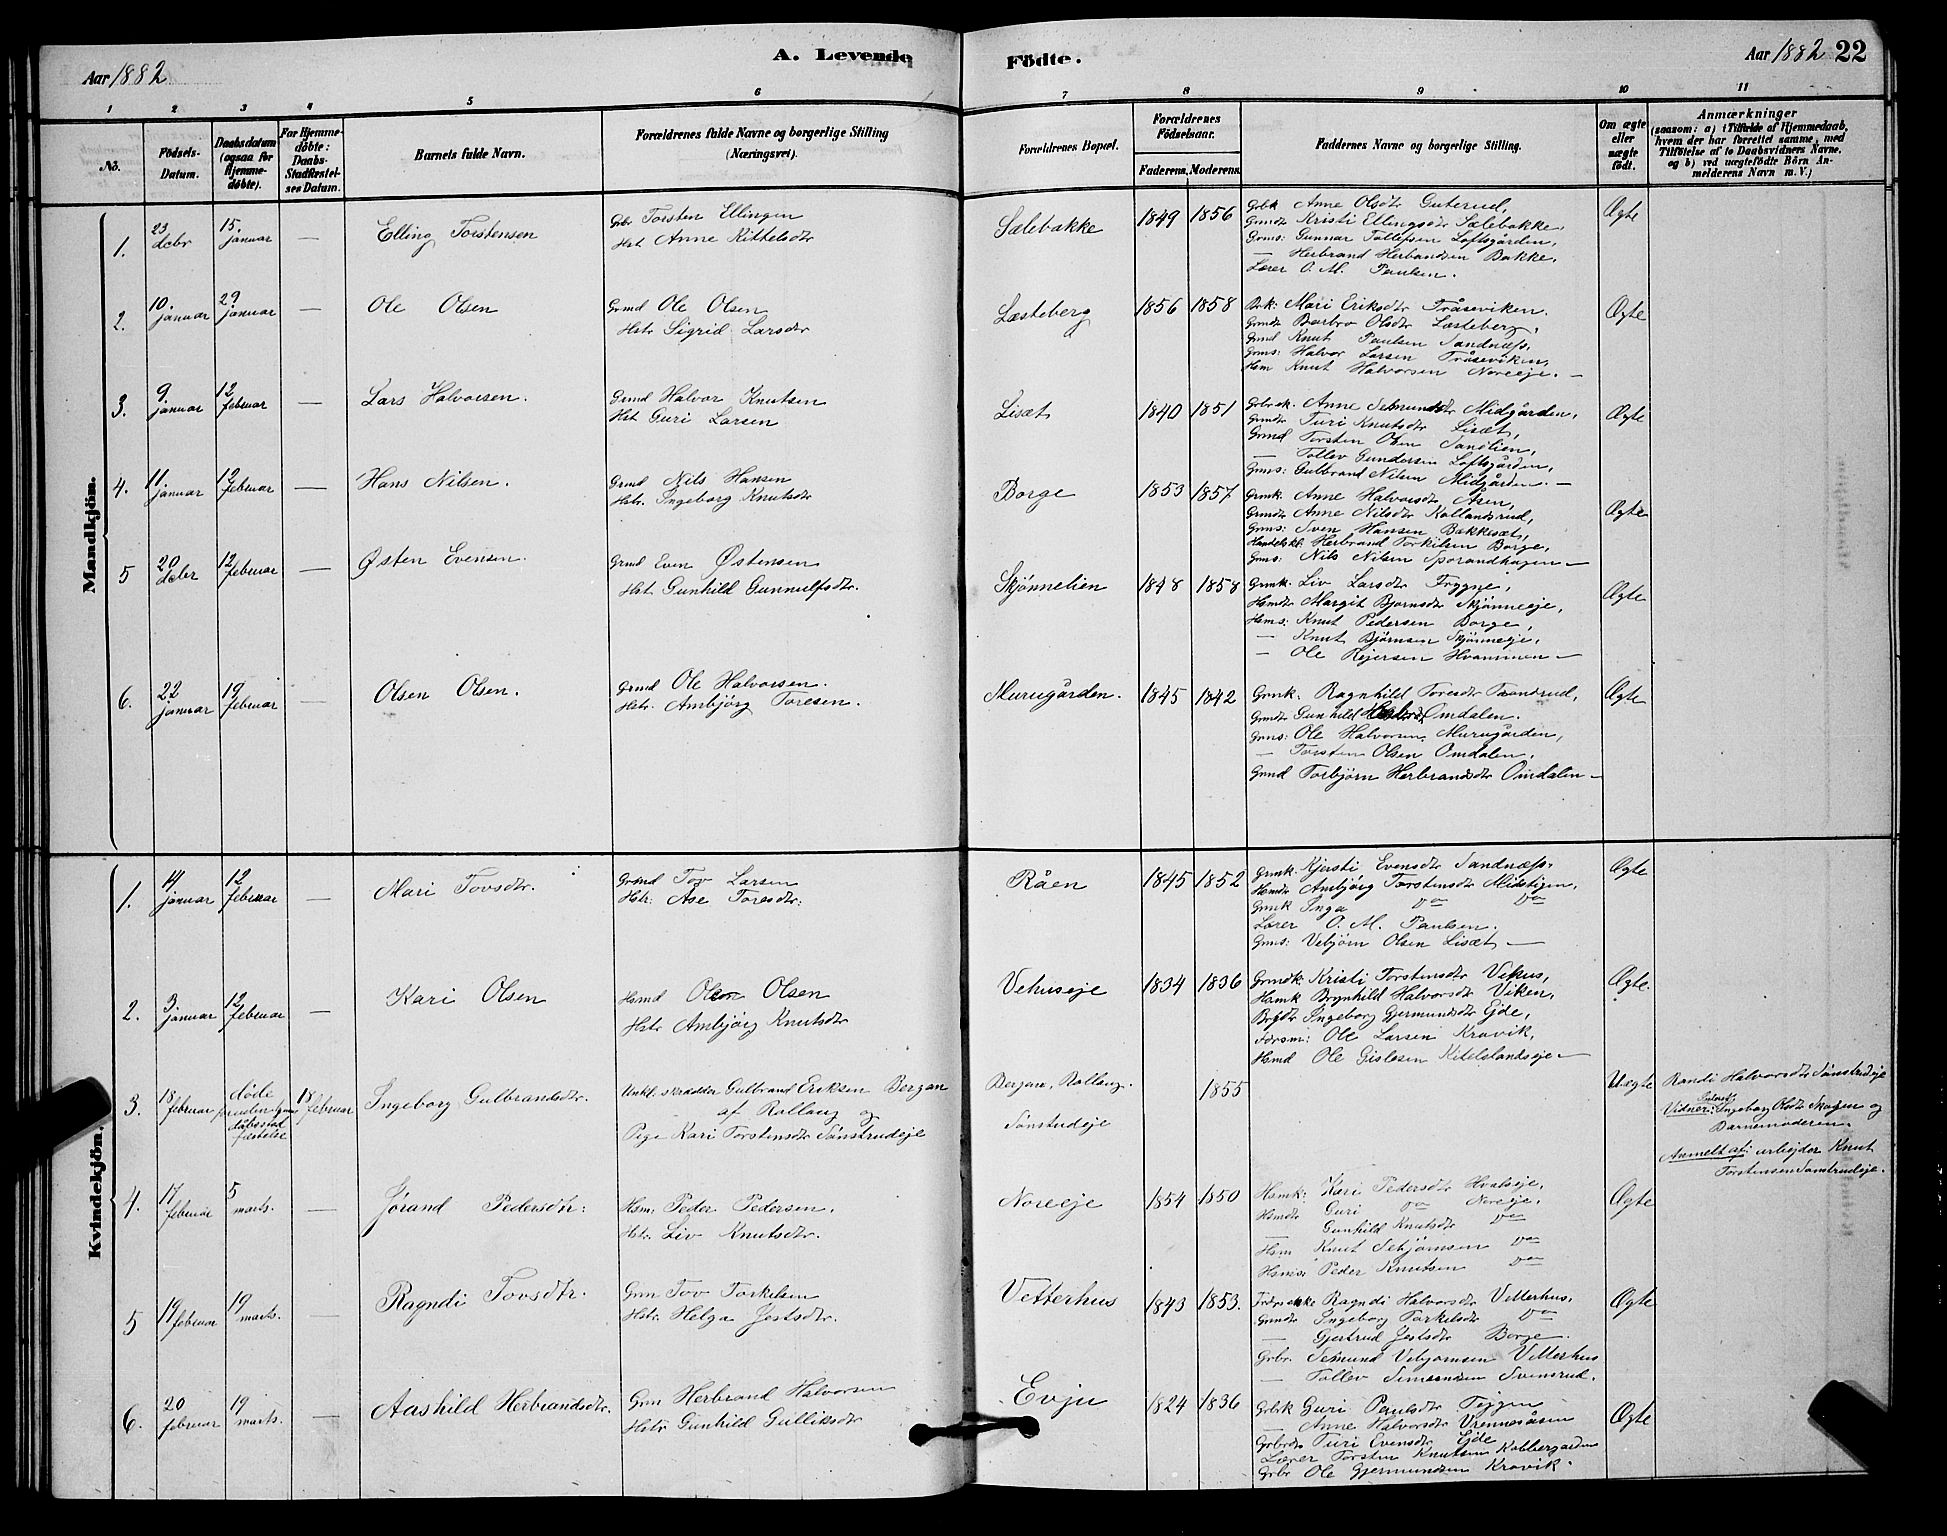 Aar 1882
A. Levende Födte.
Aar 1882 22
1 2 3 4 5 6 7 8 9 10 11
No.
Födsels-Datum.
Daabsdatum (ogsaa for Hjemmedøbte).
For Hjemmedøbte: Daabs-Stadfæstelses Datum.
Barnets fulde Navn.
Forældrenes fulde Navne og borgerlige Stilling (Næringsvei).
Forældrenes Bopæl.
Forældrenes Födselsaar.
Faderens. Moderens.
Faddernes Navne og borgerlige Stilling.
Om ægte eller uægte födt.
Anmærkninger
(saasom: a) i Tilfælde af Hjemmedaab,
hvem der har forrettet samme, med
Tilföielse af to Daabsvidners Navne,
og b) ved uægtefödte Börn Anmelderens Navn m. V.)
Mandkjön.
1. 23 debr 15 januar — Elling Torstensen
Gbr Torsten Ellingen
Hst Anne Kittelsdtr
Sælebakke 1849 1856
Gbk Anne Olsdtr Guterud,
Grmdt Kristi Ellingsdtr Sælebakke,
Grms: Gunnar Tollefsen Loftsgården,
— Herbrand Herbandsen Bakke,
Lærer O. M. Paulsen.
Ægte
2. 10 januar 29 januar — Ole Olsen
Grmd Ole Olsen
Hstr Sigrid Larsdtr
Læsteberg 1856 1858
Brk: Mari Eriksdtr Tråseviken.
Grmdt Barbro Olsdtr Læsteberg,
Grmd Knut Paulsen Sandnæss,
Grms: Halvor Larsen Tråseviken,
Hsm Knut Halvorsen Noreeje. —
Ægte
3. 9 januar 12 februar — Lars Halvorsen.
Grmd Halvor Knutsen
Hst Guri Larsen
Lisæt 1840 1851
Gbrek. Anne Semundsdtr Midgården,
Grmdtr Turi Knutsdtr Lisæt,
Grmd Torsten Olsen Sandlien,
— Tollev Gundersen Loftsgården,
Grms: Gulbrand Nilsen Midgården. —
Ægte
4. 11 januar 12 februar — Hans Nilsen.
Grmd Nils Hansen
Hstr. Ingeborg Knutsdtr
Borge 1853 1857
Grmk. Anne Halvorsdtr Åsen,
Grmdtr Anne Nilsdtr Kollandsrud,
Grms: Sven Hansen Bakkesæt,
Handelskl. Herbrand Torkilsen Borge,
Grms: Nils Nilsen Sporandhagen —
Ægte
5 20 debr 12 februar — Østen Evensen.
Grmd Even Østensen
Hst. Gunhild Gunnulfsdtr.
Skjønnelien 1848 1858
Grmk: Liv Larsdtr Frygne,
Hsmdtr Margit Bjornsdtr Skjønneeje,
Hsms: Knut Pedersen Borge,
— Knut Bjørnsen Skjønneeje.
— Ole Rejersen Hvammen —
Ægte
6. 22 januar 19 februar — Olsen Olsen.
Grmd Ole Halvorsen.
Hstr. Ambjørg Toresen.
Murugården. 1845 1842
Grmk. Ragnhild Toresdtr Trondrud,
Grmdtr Gunhild Omdalen.
Grms: Ole Halvorsen Murugården,
— Torsten Olsen Omdalen,
Grmd Torbjörn Herbrandsdtr Omdalen —
Ægte
Kvindekjön.
1. 14 januar 12 februar — Mari Tovsdtr.
Grmd Tov Larsen
Hstr: Åse Toresdtr:
Råen 1845 1852
Grmk. Kjersti Evensdtr Sandnæss.
Hsmdtr Ambjörg Torstensdtr Midstigen,
Grmk Inga Do Do
Lærer O. M. Paulsen.
Grms: Vebjörn Olsen Lisæt —
Ægte
2. 3 januar 12 februar — Kari Olsen
Hsmd Olsen
Hstr Ambjörg Knutsdtr
Vehuseje 1834 1836
Grmdk. Kristi Torstensdtr Vehus,
Hsmk Brynhild Halvorsdtr Viken,
Brgdtr Ingeborg Gjermundsdtr Ejde,
Forsm: Ole Larsen Kravik,
Hsmd Ole Gislesen Kitelslandseje —
Ægte.
3. 18 februar døde forinden dåbsstadfæstelse 18 februar Ingeborg Gulbrandsdtr.
Unkl. skrædder Gulbrand Eriksen Bergan
af Rollaug og
Pige Kari Torstensdtr Sönstrudeje
Bergan, Rollaug. 1855
Sönstudeje
Uægte
Randi Halvorsdtr Sönstrudeje
Vidner: Ingeborg Olsdtr Skogen og
Barnemoderen.
Anmeldt af: arbejder Knut
Torstensen Sønstrudeje.
4. 17 februar 5 marts. — Jørand Pedersdtr:
Hsm: Peder Pedersen.
Hstr. Liv Knutsdtr.
Noreeje 1854 1850
Hsmk: Kari Pedersdtr Hvalseje,
Hsmdtr Guri Do Noreeje.
— Gunhild Knutsdtr Do
Hsm Knut Sebjörnsen Do
Hsms: Peder Knutsen Do
Ægte
5 19 februar 19 marts. — Ragndi Tovsdtr.
Grm Tov Torkelsen
Hstr. Helga Jestsdtr.
Vetterhus 1843 1853.
Ragndi Halvorsdtr Vetterhus,
Grmdtr Ingeborg Torkelsdtr Do
— Gjertrud Jestsdtr Borge.
Grbr. Semund Vebjornsen Vetterhus
— Tollev Simonsen Svensrud.
Ægte
6. 20 februar 19 marts. — Aashild Herbrandsdtr.
Grm Herbrand Halvorsen
Hstr Gunhild Gulliksdtr
Evju 1824 1836
Grbk Guri Paulsdtr Tejgen
— Anne Halvorsdtr Vrennesåsen
Grbrdtr Turi Evensdtr Ejde
Lærer Torsten Knutsen Kobbergarden
Grbr Ole Gjermundsen Kravik.
Ægte